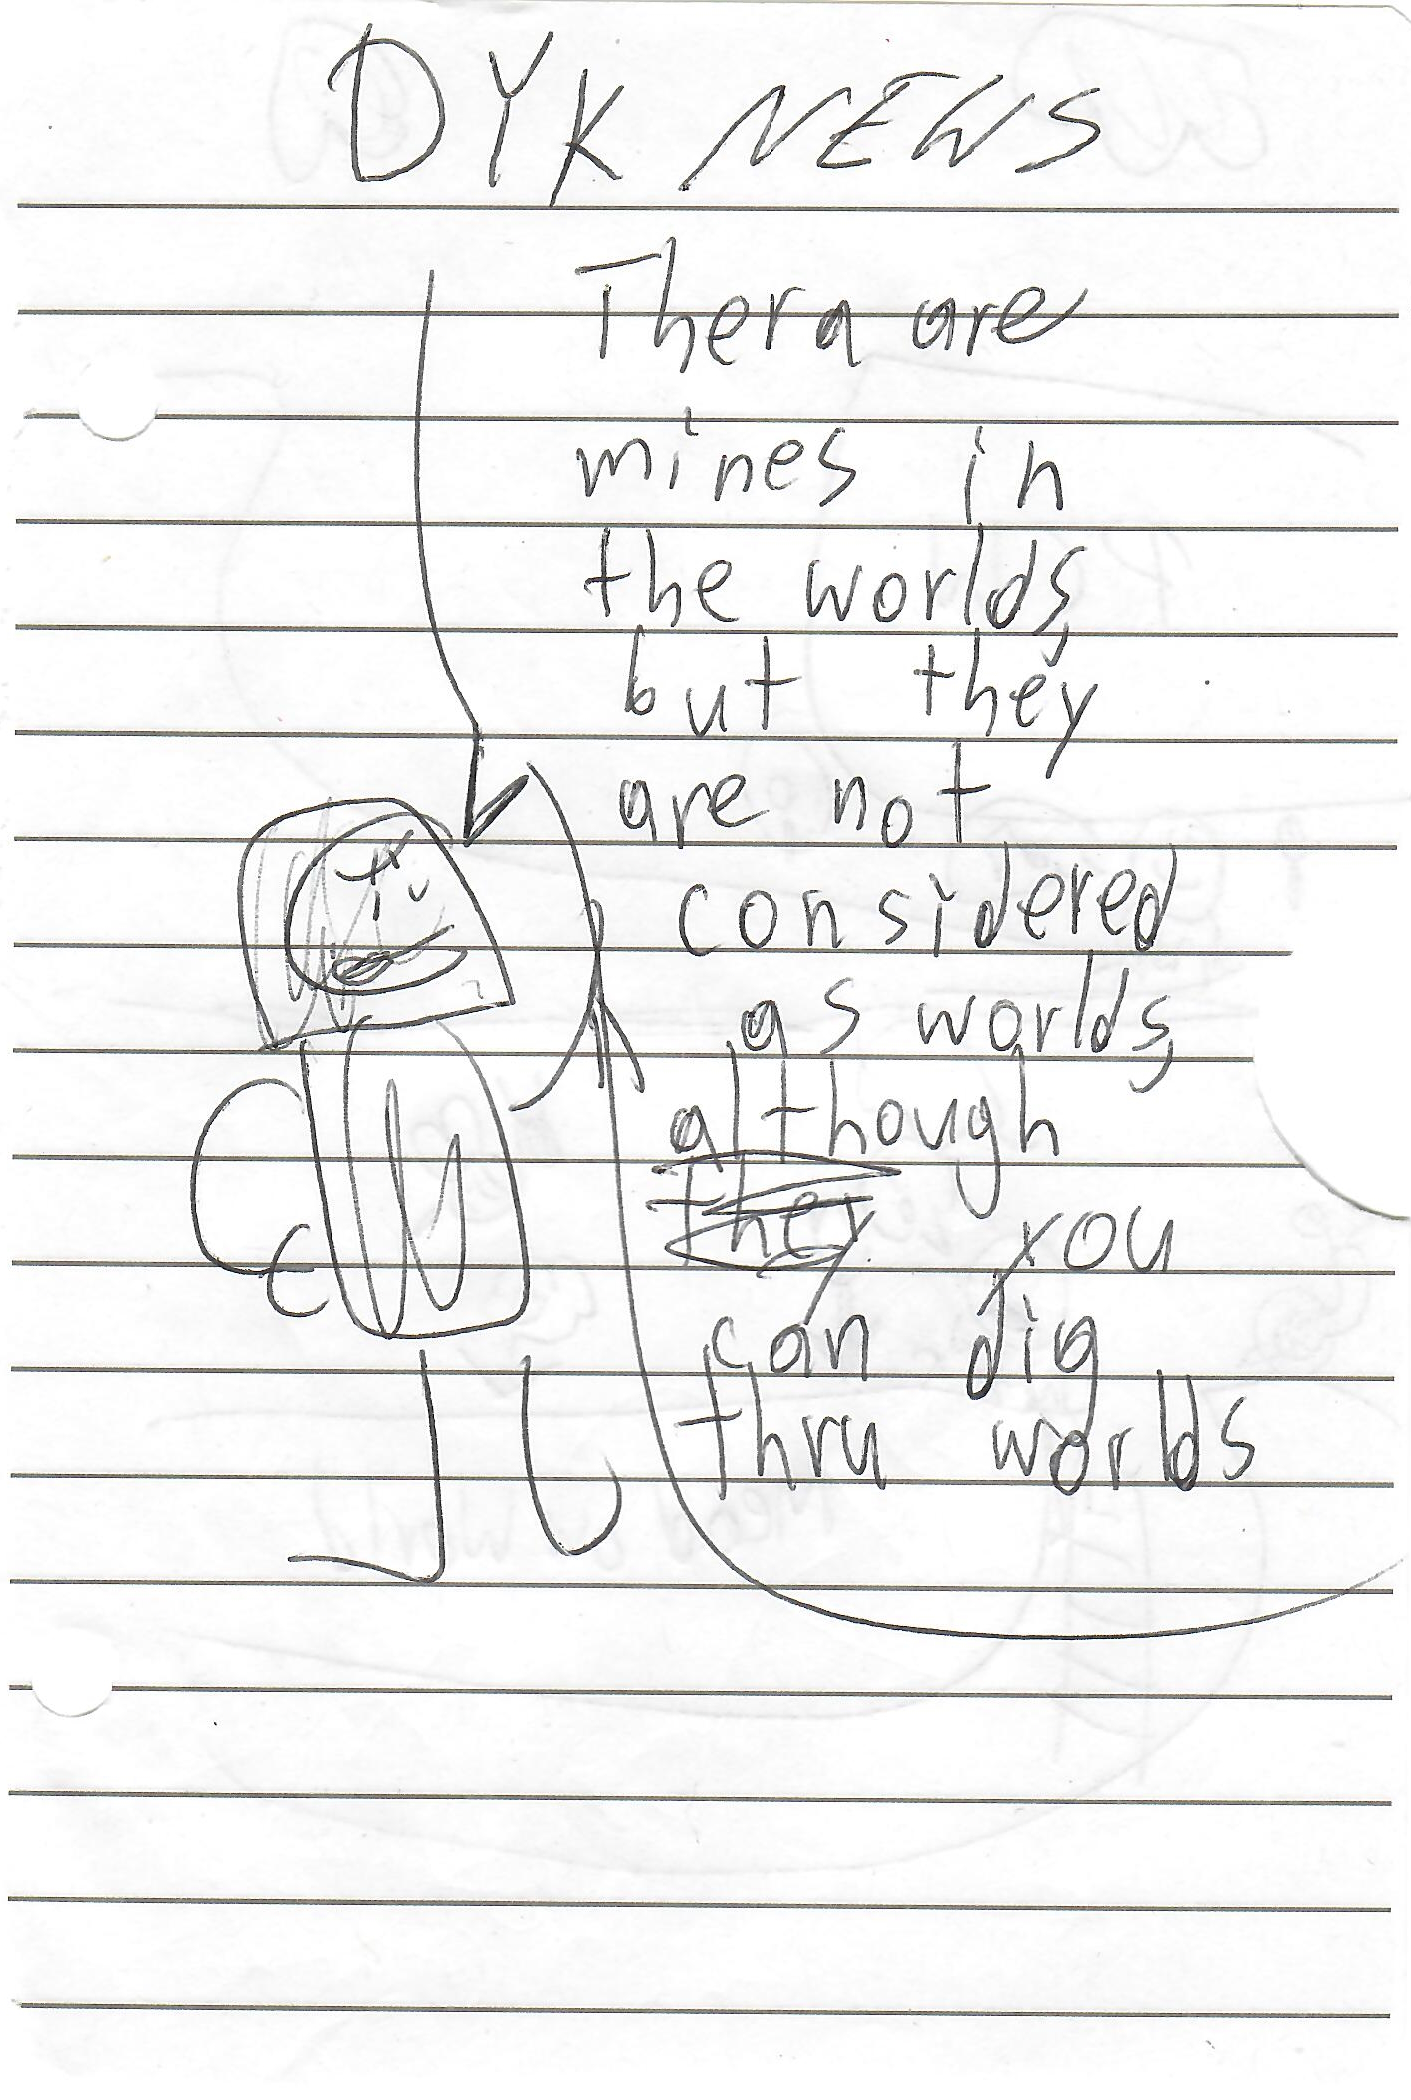 DYK NEWS
Thera are
mines in
the worlds,
but they
are not
considered
as worlds,
although
they you
can dig
thru worlds